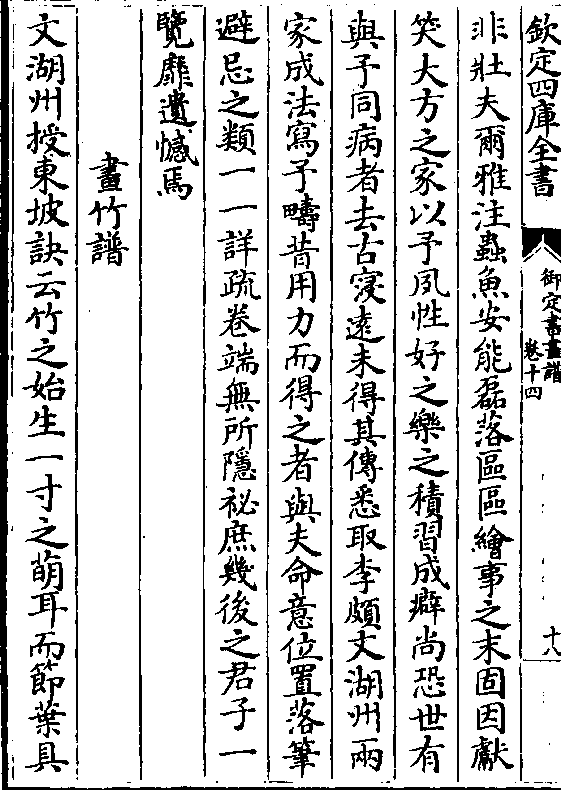 欽定四庫全書
御定書畫譜
卷十四
十八
非壯夫爾雅注蟲魚安能磊落區區繪事之末固因獻
笑大方之家以予夙性好之樂之積習成癖尚恐世有
與予同病者去古寖遠未得其傳悉取李頗文湖州兩
家成法寫予疇昔用力而得之者與夫命意位置落筆
避忌之類一一詳疏卷端無所隱祕庶幾後之君子一
覽靡遺憾焉
畫竹譜
文湖州授東坡訣云竹之始生一寸之萌耳而節葉具